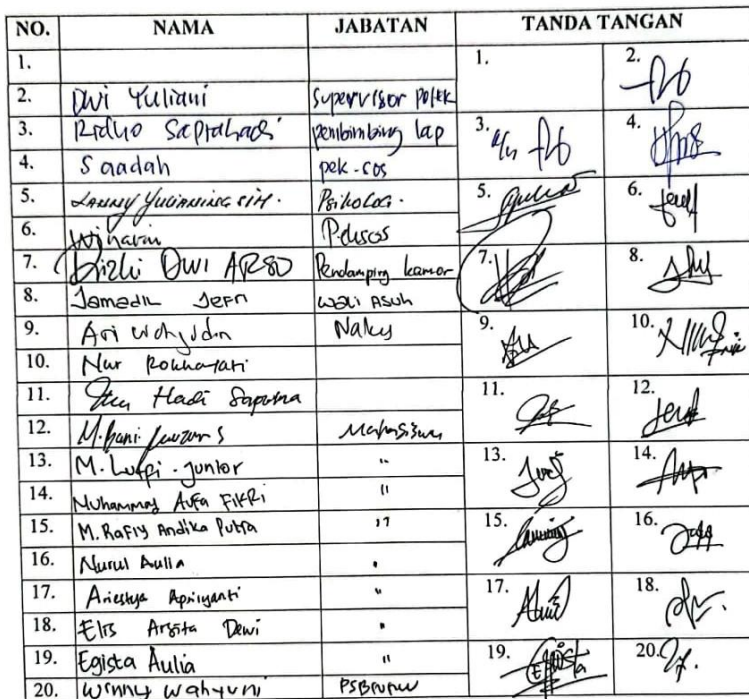 NO. NAMA JABATAN TANDA TANGAN
1. 1. 2.
2. Dwi Yuliani Supervisor
3. Ridho Saprahadi pembimbing lap 3. 4.
4. Saadah pek-sos
5. Lanny Yulianingsih. Psikolog. 5. 6.
6. Winarni Peksos
7. Dwi ARSO Pendamping kamar 7. 8.
8. Jamedil Jefri Wali Asuh
9. Ari Wahyudin Nakes 9. 10.
10. Nur Rokhayati
11. Hadi Saputra 11. 12.
12. M. Mahasiswa
13. M. Lutfi . Junior " 13. 14.
14. Muhammad Aufa FIKRi "
15. M. Rafiy Andika Putra " 15. 16.
16. Nurul Aulia "
17. Apriyanti " 17. 18.
18. Elis Arsita Dewi "
19. Egista Aulia " 19. Egista 20.
20. Winny Wahyuni